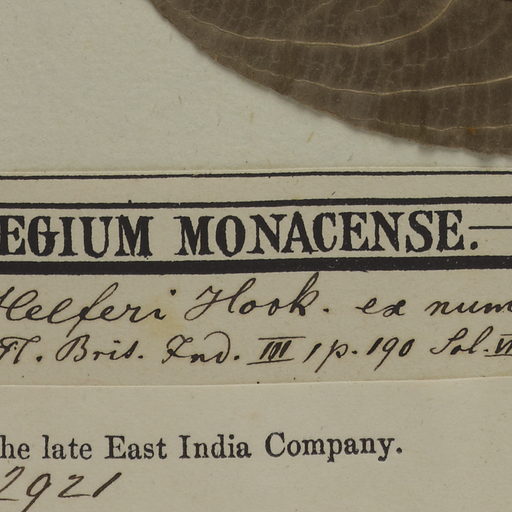 EGIUM MONACENSE.
Helferi Hook. ex num
Fl. Brit. Ind. III, p. 190 Sol. VI
he late East India Company.
2921